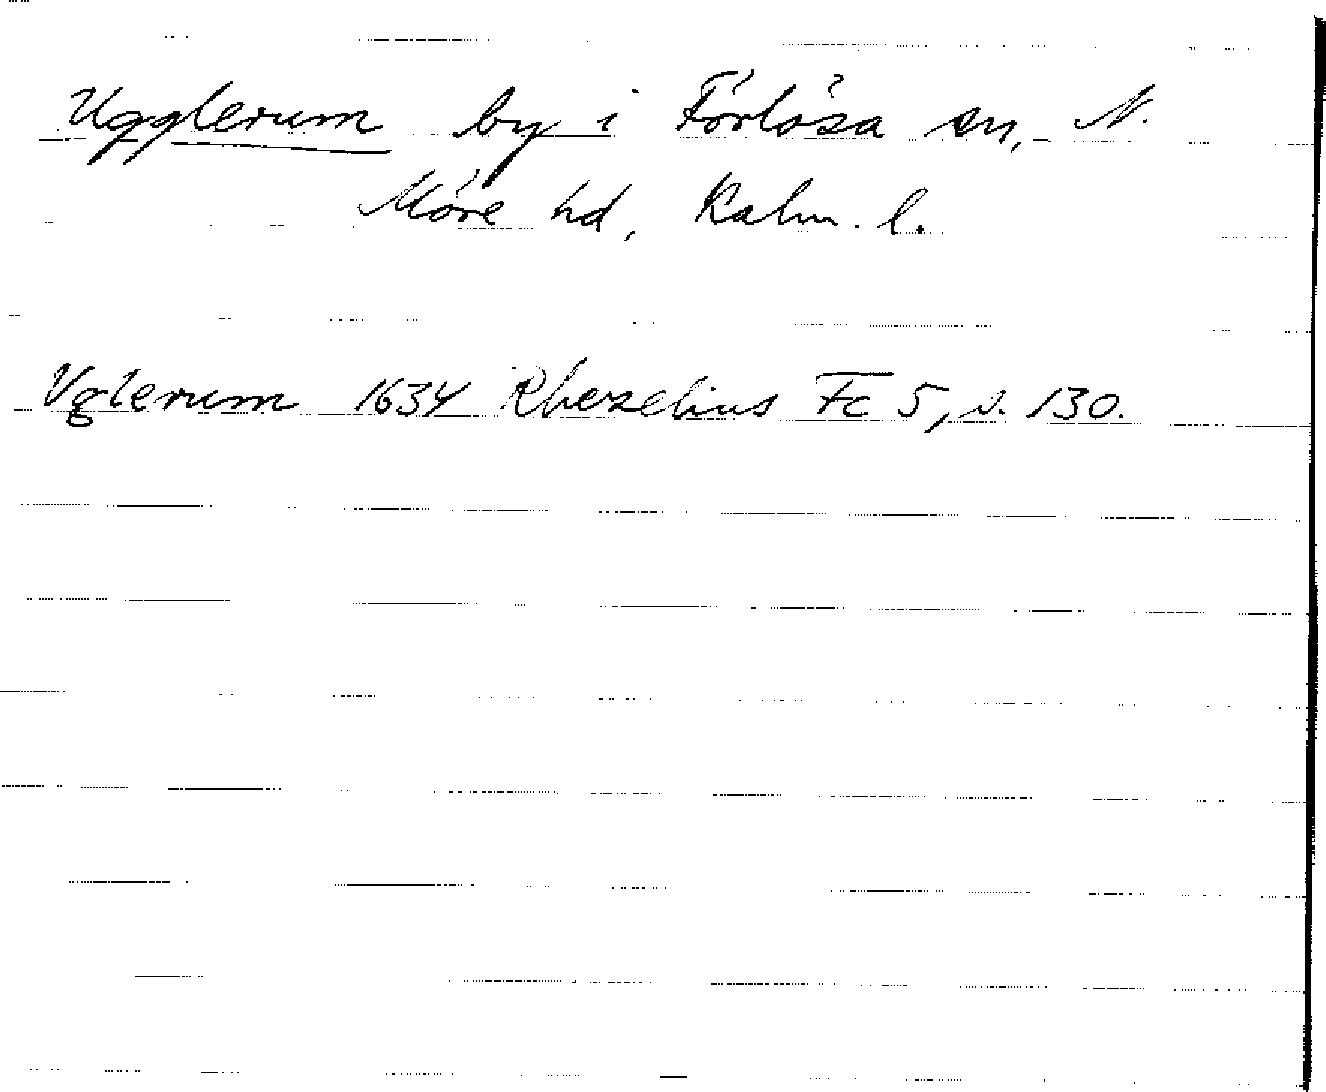 Ugglerum by i Förlösa sn, N.
Möre hd, Kalm. l.
Uglerum 1634 Rhezelius Fc 5, s. 130.